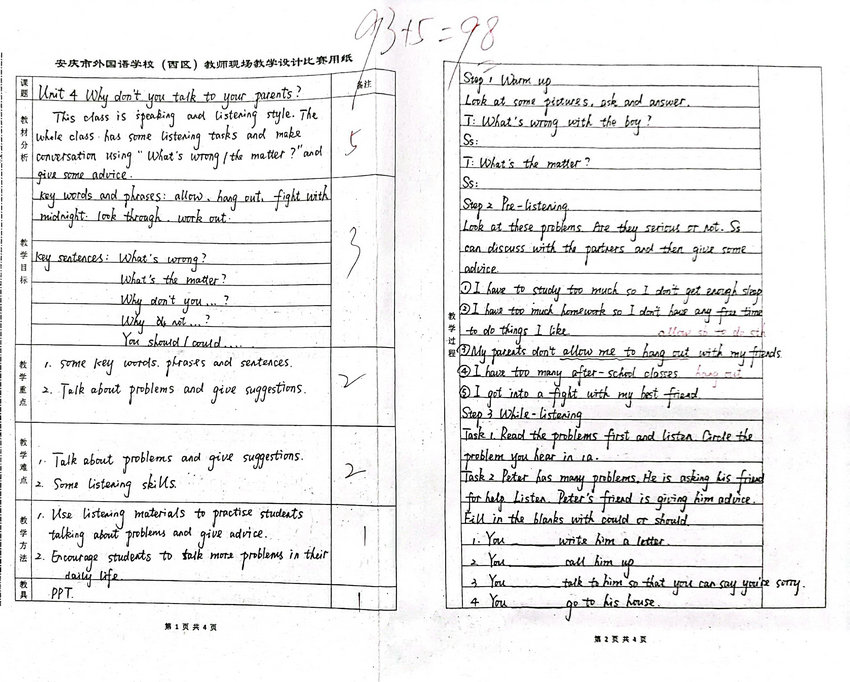 93+5=98
安庆市外国语学校（西区）教师现场教学设计比赛用纸
课题
Unit 4 Why don't you talk to your parents?
备注
教材分析
This class is speaking and listening style. The
whole class has some listening tasks and make
conversation using "What's wrong / the matter?" and
give some advice.
5
教学目标
key words and phrases: allow, hang out, fight with
midnight. look through. work out.
key sentences: What's wrong?
What's the matter?
Why don't you...?
Why do not...?
You should / could....
3
教学重点
1. some key words. phrases and sentences.
2. Talk about problems and give suggestions.
2
教学难点
1. Talk about problems and give suggestions.
2. Some listening skills.
2
教学方法
1. Use listening materials to practise students
talking about problems and give advice.
2. Encourage students to talk more problems in their
daily life.
1
教具
PPT.
1
第 1 页 共 4 页
教学过程
Step 1 Warm up
Look at some pictures, ask and answer.
T: What's wrong with the boy?
Ss:
T: What's the matter?
Ss:
Step 2 Pre-listening
Look at these problems. Are they serious or not. Ss
can discuss with the partners and then give some
advice
① I have to study too much so I don't get enough sleep
② I have too much homework so I don't have any free time
to do things I like.
allow sb to do sth
③ My parents don't allow me to hang out with my friends
④ I have too many after-school classes.
hang out
⑤ I got into a fight with my best friend.
Step 3 While-listening
Task 1. Read the problems first and listen. Circle the
problem you hear in 1a.
Task 2 Peter has many problems. He is asking his friend
for help. Listen. Peter's friend is giving him advice.
Fill in the blanks with could or should.
1. You ______ write him a letter.
2. You ______ call him up
3 You ______ talk to him so that you can say you're sorry.
4 You ______ go to his house.
第 2 页 共 4 页